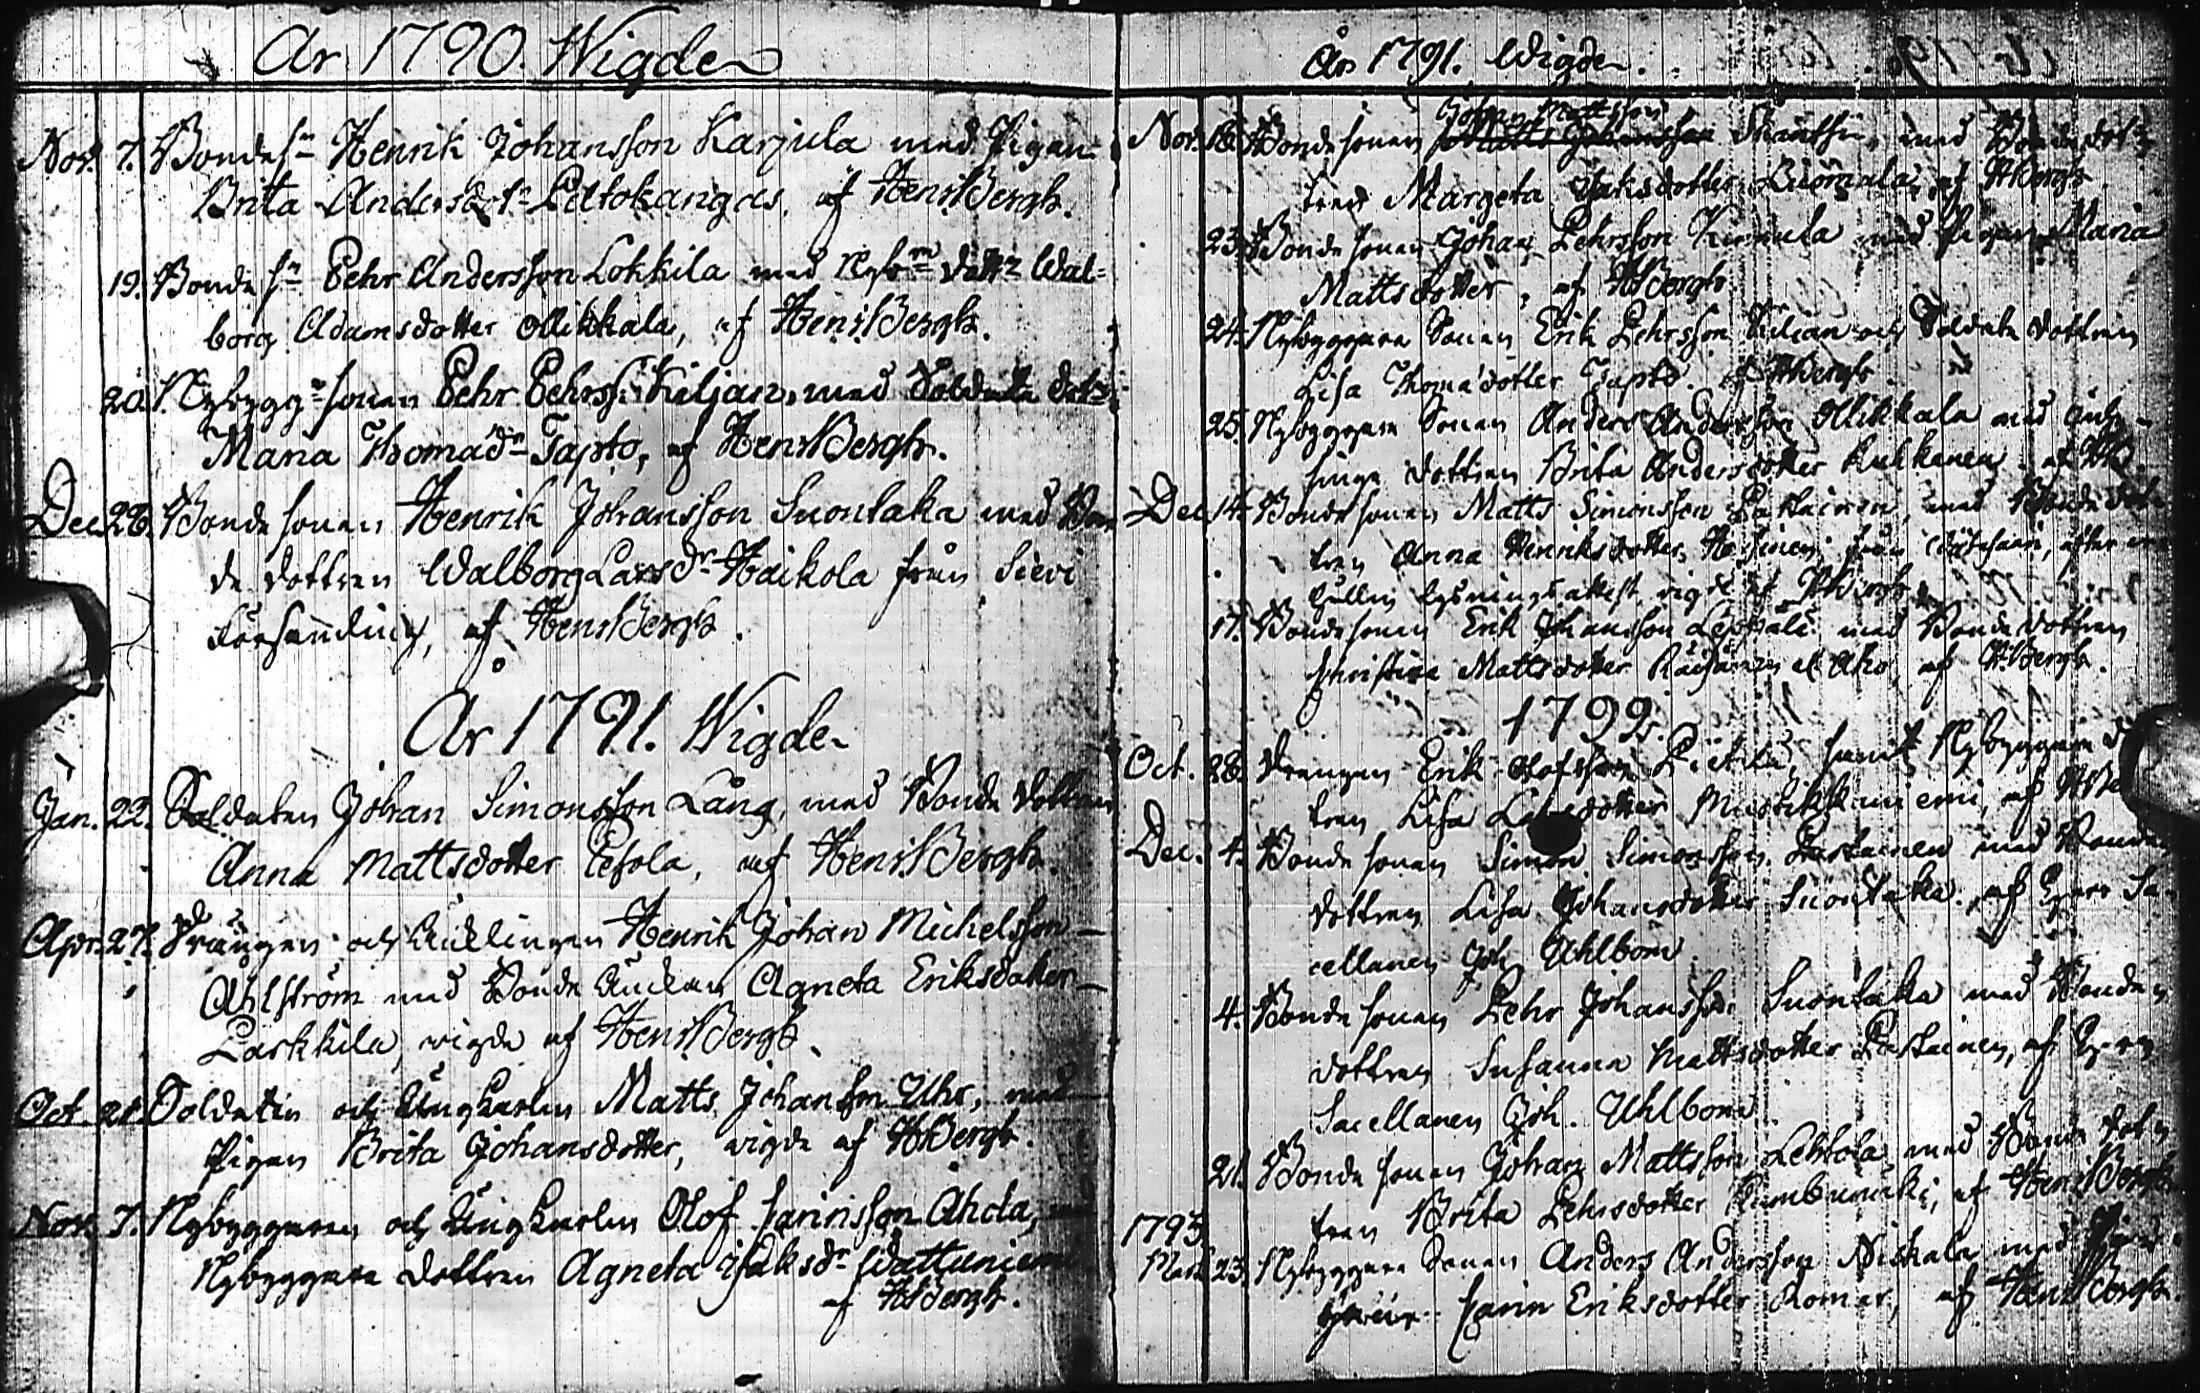 År 1790. Wigde
Nov. 7. Bondes:n Henrik Johansson Karjula med Pigan
Brita Andersdot:r Latokangas, af Hen: Bergh.
19. Bonde s:n Pehr Andersson Lokkila med Wal-
borg Adamsdotter Ollikkala, af Hen: Bergh.
20. Nybygg:e sonen Pehr Pehrss: Kiljan, med Soldate dot:r
Maria Thomæd:r Tapto, af Hen: Bergh.
Dec. 26. Bonde sonen Henrik Johansson Suontaka med Bon
de dottren Walborg Larsd:r Haikola från Sievi
Församling, af Hen: Bergh.
År 1791. Wigde
Jan. 22. Soldaten Johan Simonsson Lång, med Bonde dottren
Anna Mattsdotter Pesola, af Hen: Bergh.
Apr. 27. Drängen och Änklingen Henrik Johan Michelsson
Ahlström med Bonde Änckan Agneta Eriksdotter
Larkkila, vigde af Hen: Bergh.
Oct. 21. Soldaten och Ungkarlen Matts Johansson Uhr, med
Pigan Brita Johansdotter, vigde af HBergh.
Nov. 7. Nybyggaren och Ungkarlen Olof Ahola,
Nybyggare dottren Agneta Isaksd:r Wattuniemi
af HBergh.
År 1791. Wigde.
Johan Mattsson
Nov. 18. Bonde sonen Matts Johansson med Bonde dot-
tren Margeta Isaksdotter Luomala, af HBergh
23. Bonde sonen Johan Pehrsson med Pigan Maria
Mattsdotter, af HBergh
24. Nybyggare Sonen Erik Pehrsson Kilian och Soldate dottren
Lisa Thomædotter Tapto. af HBergh.
25. Nybyggare Sonen Anders Andersson Ollikkala med
dottren Brita Andersdotter Kukkonen. af HB.
Dec. 14. Bonde sonen Matts Simonsson Pastainen, med Bonde dot-
tren Anna Henriksdotter från efter
lysnings attest vigde af HBergh.
17. Bonde sonen Erik Johansson med Bonde dottren
Christina Mattsdotter Räisänen el. Aho, af H:Bergh.
1792.
Oct. 28. Drengen Erik Olofsson samt Nybyggare
tren Lisa Larsdotter Mustikkaniemi, af
Dec. 4. Bonde sonen Simon Simonsson Pastainen med Bonde
dottren Lisa Johansdotter Suontaka, af Herr Sa-
cellanen Joh Uhlbom
4. Bonde sonen Pehr Johansson Suontaka med Bonde
dottren Susanna Mattsdotter Pastainen, af Herr
Sacellanen Joh. Uhlbom
21. Bonde sonen Johan Mattsson Lehtola, med Bonde dot
tren Brita Pehrsdotter af Hen: Bergh
1793
Mart. 23. Nybyggare Sonen Anders Andersson Niskala med
Carin Eriksdotter Komar, af Hen: Bergh.